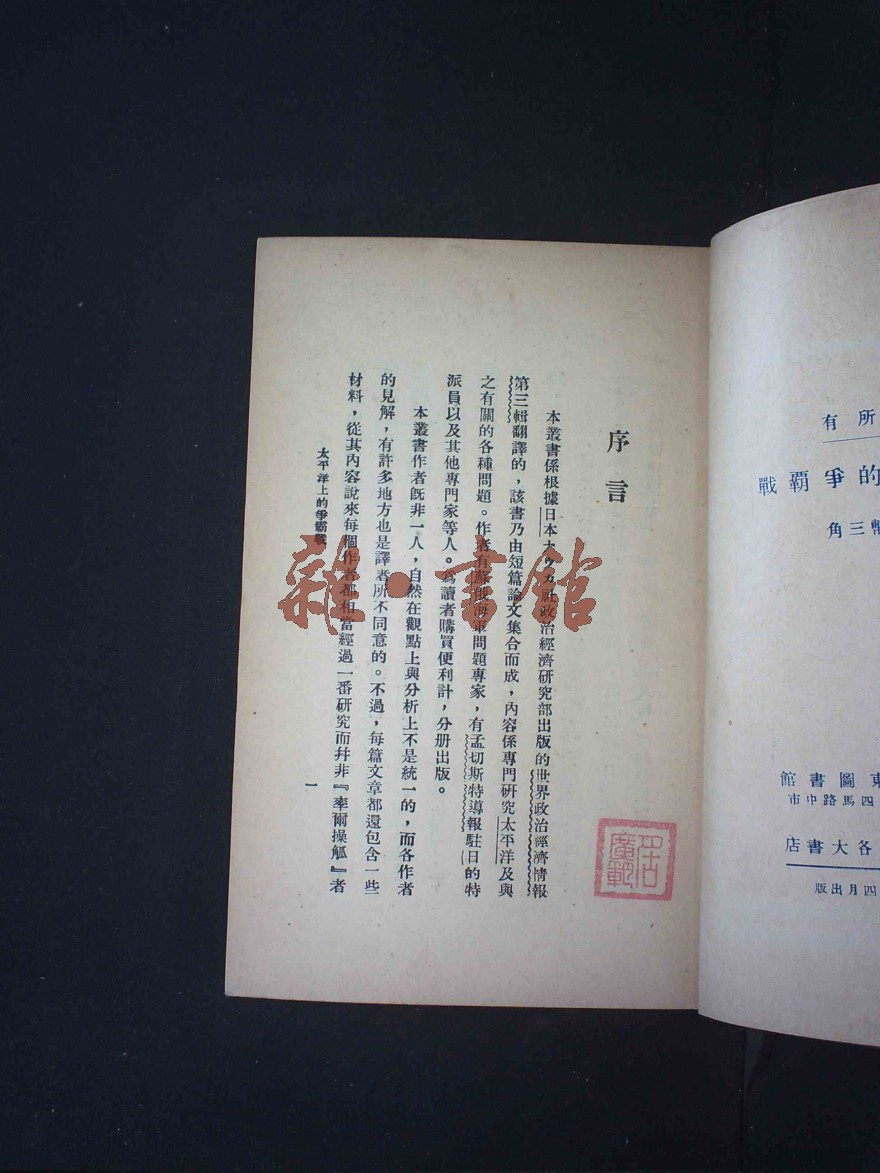 有所
戰霸爭的
角三幣
館書圖東
市中路馬四
店書大各
版出月四
序言
本叢書係根據日本
社政治經濟研究部出版的世界政治經濟情報
第三輯翻譯的，該書乃由短篇論文集合而成，內容係專門研究太平洋及與
之有關的各種問題。作者有蘇俄海軍問題專家，有孟切斯特導報駐日的特
派員以及其他專門家等人。為讀者購買便利計，分册出版。
本叢書作者既非一人，自然在觀點上與分析上不是統一的，而各作者
的見解，有許多地方也是譯者所不同意的。不過，每篇文章都還包含一些
材料，從其內容說來每個作者都相當經過一番研究而幷非『率爾操觚』者
太平洋上的爭霸戰
一
雜·書館